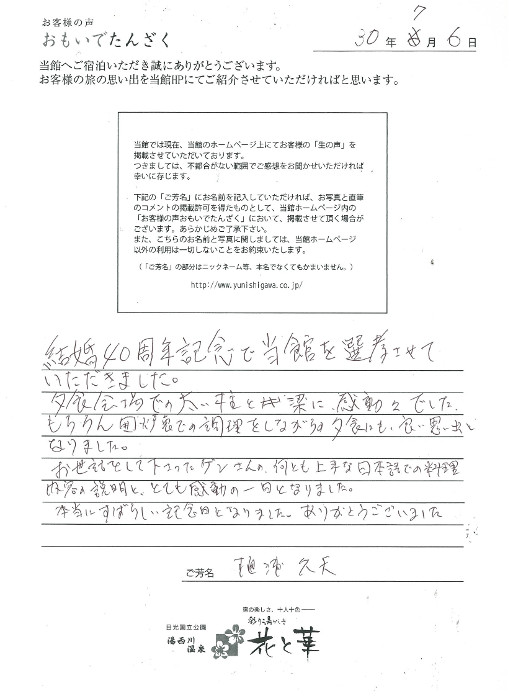 お客様の声
おもいでたんざく
30年 7月 6日
当館へご宿泊いただき誠にありがとうございます。
お客様の旅の思い出を当館HPにてご紹介させていただければと思います。
当館では現在、当館のホームページ上にてお客様の「生の声」を
掲載させていただいております。
つきましては、不都合がない範囲でご感想をお聞かせいただければ
幸いに存じます。
下記の「ご芳名」にお名前を記入していただければ、お写真と直筆
のコメントの掲載許可を得たものとして、当館ホームページ内の
「お客様の声おもいでたんざく」において、掲載させて頂く場合が
ございます。あらかじめご了承下さい。
また、こちらのお名前と写真に関しましては、当館ホームページ
以外の利用は一切しないことをお約束いたします。
（「ご芳名」の部分はニックネーム等、本名でなくてもかまいません。）
http://www.yunishigawa.co.jp/
結婚40周年記念で当館を選考させて
いただきました。
夕食会場での太い柱と梁に、感動々でした。
もちろん囲炉裏での調理をしながらの夕食にも、良い思い出と
なりました。
お世話をして下さったゲンさんの、何とも上手な日本語での料理
内容の説明と、とても感動の一日となりました。
本当にすばらしい記念日となりました。ありがとうございました
ご芳名 久夫
宿の楽しさ、十人十色
日光国立公園
湯西川
温泉
花と華